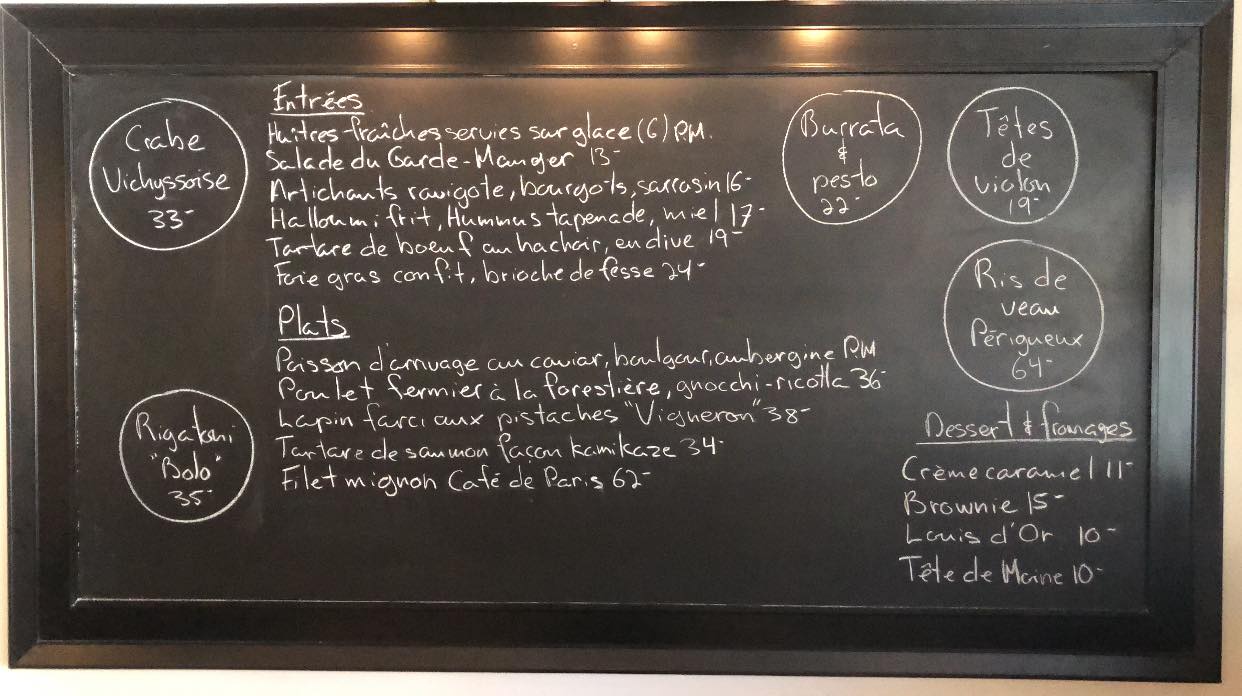 Crabe
Vichyssoise
33-
Entrées
Huîtres fraîches servies sur glace (6) P.M.
Salade du Garde-Manger 13-
Artichauts ravigote, bourgots, sarrasin 16-
Halloumi frit, Hummus tapenade, miel 17-
Tartare de boeuf au hachoir, endive 19-
Foie gras confit, brioche de fesse 24-
Plats
Poisson d'arrivage au caviar, boulgour, aubergine P.M
Poulet fermier à la forestière, gnocchi-ricotta 36-
Lapin farci aux pistaches "Vigneron" 38-
Tartare de saumon façon kamikaze 34-
Filet mignon Café de Paris 62-
Rigatoni
"Bolo"
35-
Burrata
&
pesto
22-
Têtes
de
violon
19-
Ris de
veau
Périgueux
64-
Dessert & fromages
Crème caramel 11-
Brownie 15-
Louis d'Or 10-
Tête de Moine 10-